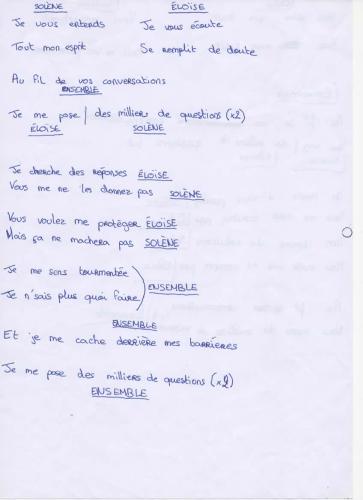 SOLÈNE ÉLOÏSE
Je vous entends Je vous écoute
Tout mon esprit Se remplit de doute
Au fil de vos conversations
ENSEMBLE
Je me pose / des milliers de questions (x2)
ÉLOÏSE SOLÈNE
Je cherche des réponses ÉLOÏSE
Vous me ne les donnez pas SOLÈNE
Vous voulez me protéger ÉLOÏSE
Mais ça ne machera pas SOLÈNE
Je me sens tourmentée
ENSEMBLE
Je n'sais plus quoi faire
ENSEMBLE
Et je me cache derrière mes barrières
Je me pose des milliers de questions (x2)
ENSEMBLE